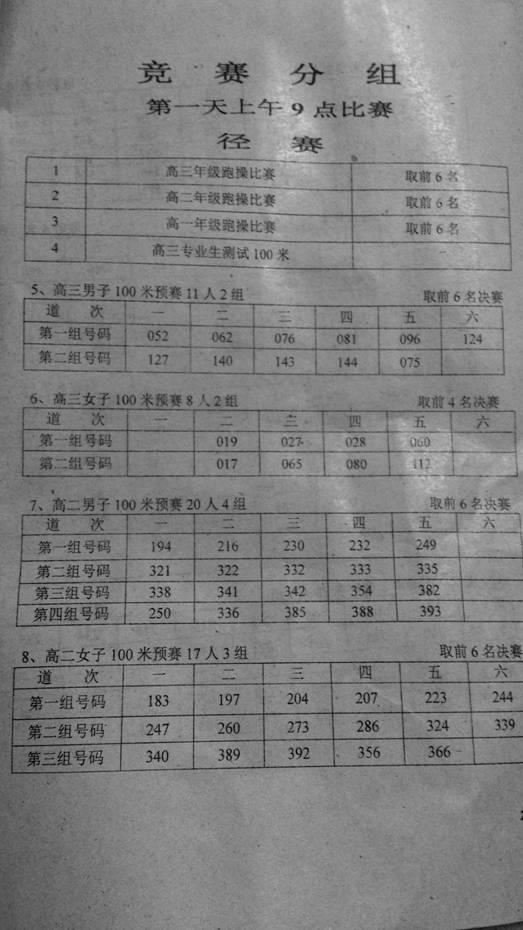 竞 赛 分 组
第一天上午9点比赛
径 赛
1 高三年级跑操比赛 取前6名
2 高二年级跑操比赛 取前6名
3 高一年级跑操比赛 取前6名
4 高三专业生测试100米
5、高三男子100米预赛11人2组 取前6名决赛
道 次 一 二 三 四 五 六
第一组号码 052 062 076 081 096 124
第二组号码 127 140 143 144 075
6、高三女子100米预赛8人2组 取前4名决赛
道 次 一 二 三 四 五 六
第一组号码 019 027 028 060
第二组号码 017 065 080 112
7、高二男子100米预赛20人4组 取前6名决赛
道 次 一 二 三 四 五 六
第一组号码 194 216 230 232 249
第二组号码 321 322 332 333 335
第三组号码 338 341 342 354 382
第四组号码 250 336 385 388 393
8、高二女子100米预赛17人3组 取前6名决赛
道 次 一 二 三 四 五 六
第一组号码 183 197 204 207 223 244
第二组号码 247 260 273 286 324 339
第三组号码 340 389 392 356 366